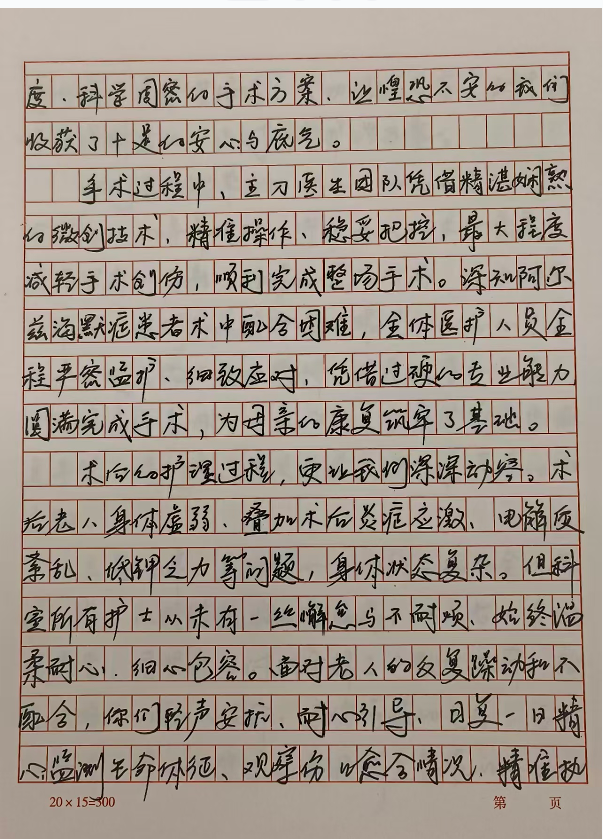 度、科学周密的手术方案，让惶恐不安的我们
收获了十足的安心与底气。
手术过程中，主刀医生团队凭借精湛娴熟
的微创技术，精准操作、稳妥把控，最大程度
减轻手术创伤，顺利完成整场手术。深知阿尔
兹海默症患者术中配合困难，全体医护人员全
程严密监护、细致应对，凭借过硬的专业能力
圆满完成手术，为母亲的康复筑牢了基础。
术后的护理过程，更让我们深深动容。术
后老人身体虚弱、叠加术后炎症应激、电解质
紊乱、低钾乏力等问题，身体状态复杂。但科
室所有护士从未有一丝懈怠与不耐烦，始终温
柔耐心、细心包容。面对老人的反复躁动和不
配合，你们轻声安抚、耐心引导，日复一日精
心监测生命体征、观察伤口愈合情况，精准执
20×15=300
第 页